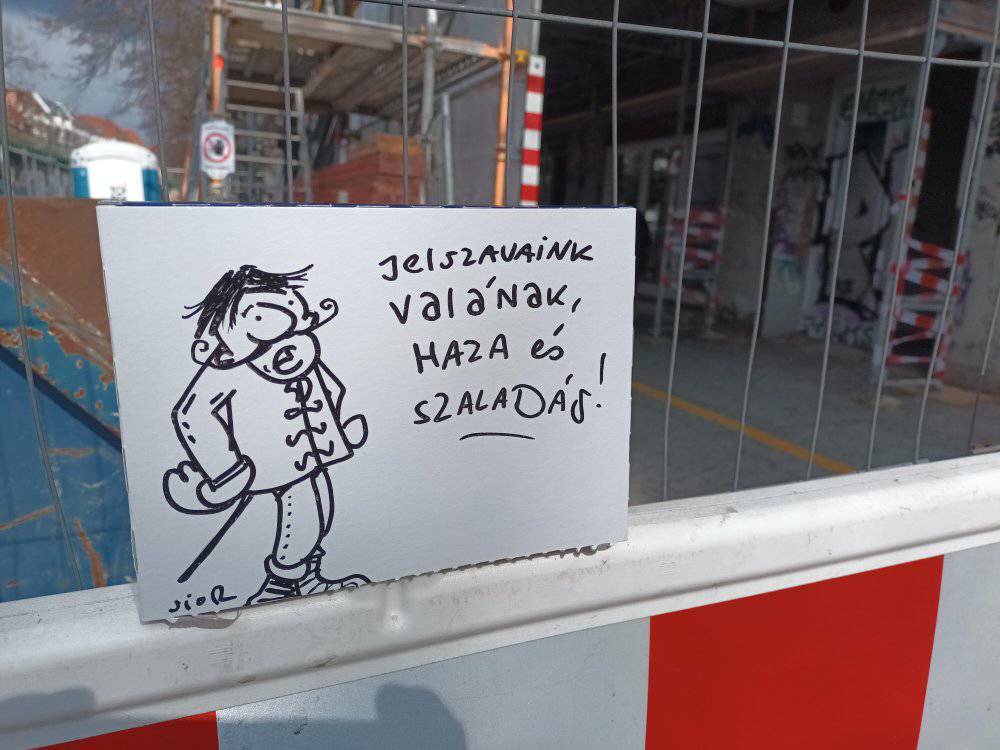 JELSZAVAINK
VALÁNAK,
HAZA ÉS
SZALADÁS!
SIOR